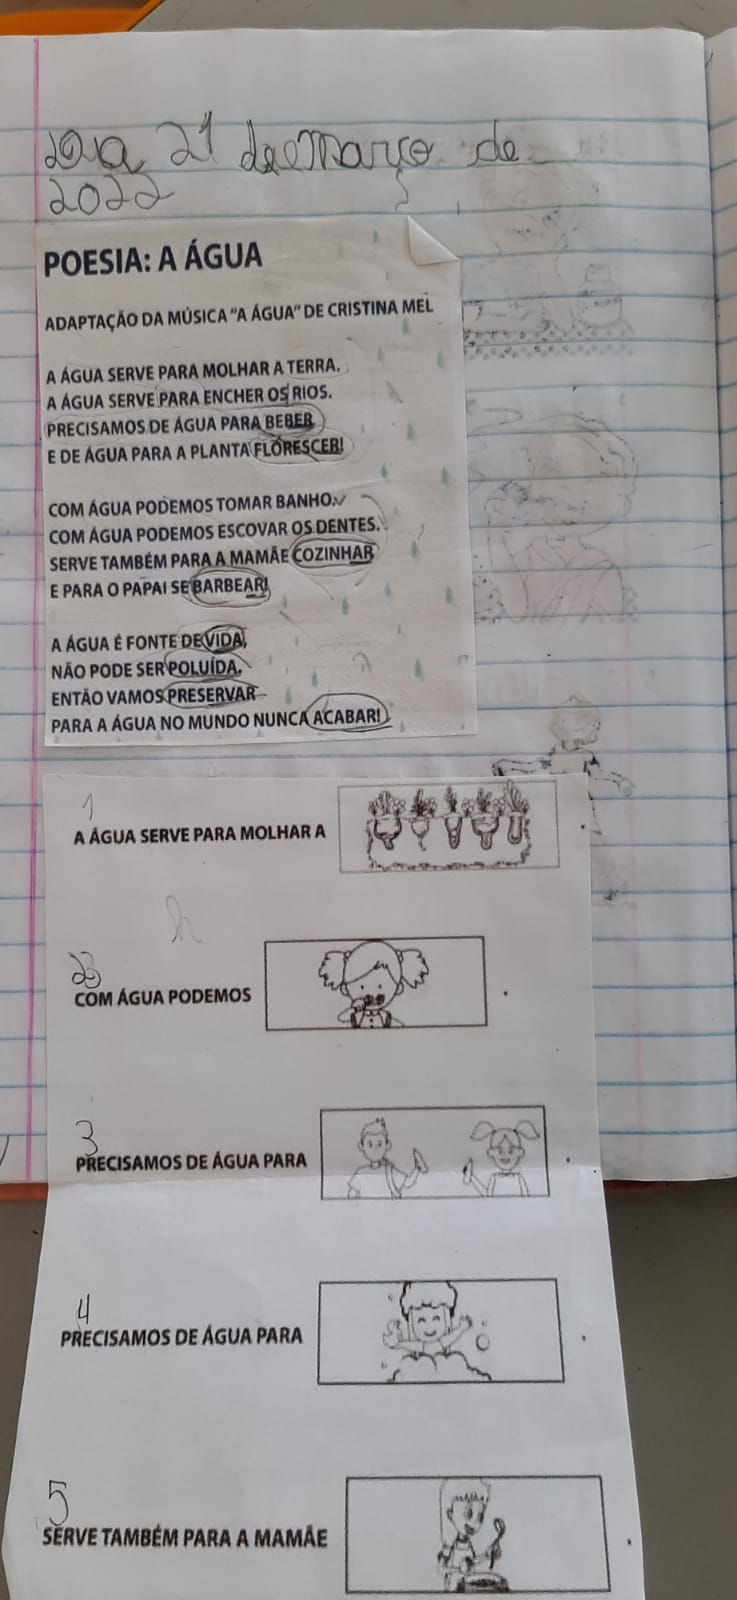 Dia 21 de março de
2022
POESIA: A ÁGUA
ADAPTAÇÃO DA MÚSICA "A ÁGUA" DE CRISTINA MEL
A ÁGUA SERVE PARA MOLHAR A TERRA.
A ÁGUA SERVE PARA ENCHER OS RIOS.
PRECISAMOS DE ÁGUA PARA BEBER
E DE ÁGUA PARA A PLANTA FLORESCER!
COM ÁGUA PODEMOS TOMAR BANHO.
COM ÁGUA PODEMOS ESCOVAR OS DENTES.
SERVE TAMBÉM PARA A MAMÃE COZINHAR
E PARA O PAPAI SE BARBEAR!
A ÁGUA É FONTE DE VIDA,
NÃO PODE SER POLUÍDA,
ENTÃO VAMOS PRESERVAR
PARA A ÁGUA NO MUNDO NUNCA ACABAR!
1
A ÁGUA SERVE PARA MOLHAR A .
2
COM ÁGUA PODEMOS .
3
PRECISAMOS DE ÁGUA PARA .
4
PRECISAMOS DE ÁGUA PARA .
5
SERVE TAMBÉM PARA A MAMÃE .